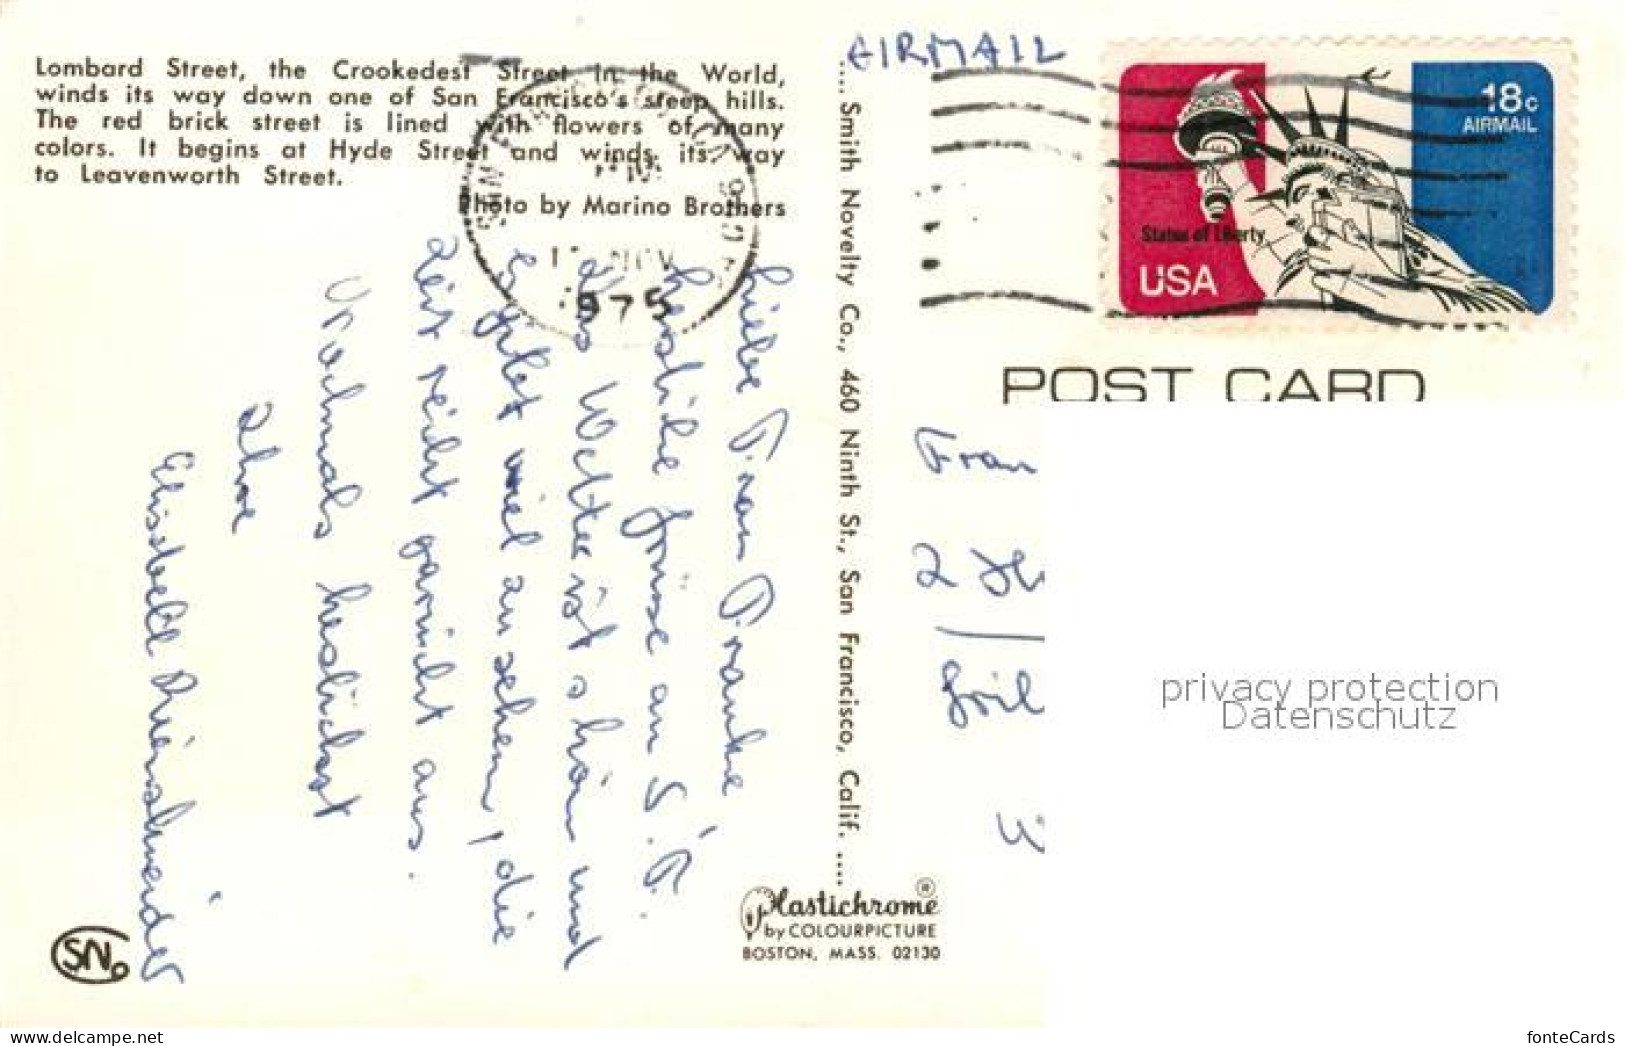 Lombard Street, the Crookedest Street in the World,
winds its way down one of San Francisco's steep hills.
The red brick street is lined with flowers of many
colors. It begins at Hyde Street and winds its way
to Leavenworth Street.
Photo by Marino Brothers
NOV
1975
Liebe Frau Franke
herzliche Grüsse aus S. F.
Das Wetter ist schön und
es gibt viel zu sehen, die
Zeit reicht gar nicht aus.
Nochmals herzlichst
Ihre
Elisabeth
SN
.... Smith Novelty Co., 460 Ninth St., San Francisco, Calif. ....
Plastichrome ®
by COLOURPICTURE
BOSTON, MASS. 02130
AIRMAIL
18c
AIRMAIL
Statue of Liberty
USA
POST CARD
Frau
2
privacy protection
Datenschutz
www.delcampe.net
fonteCards